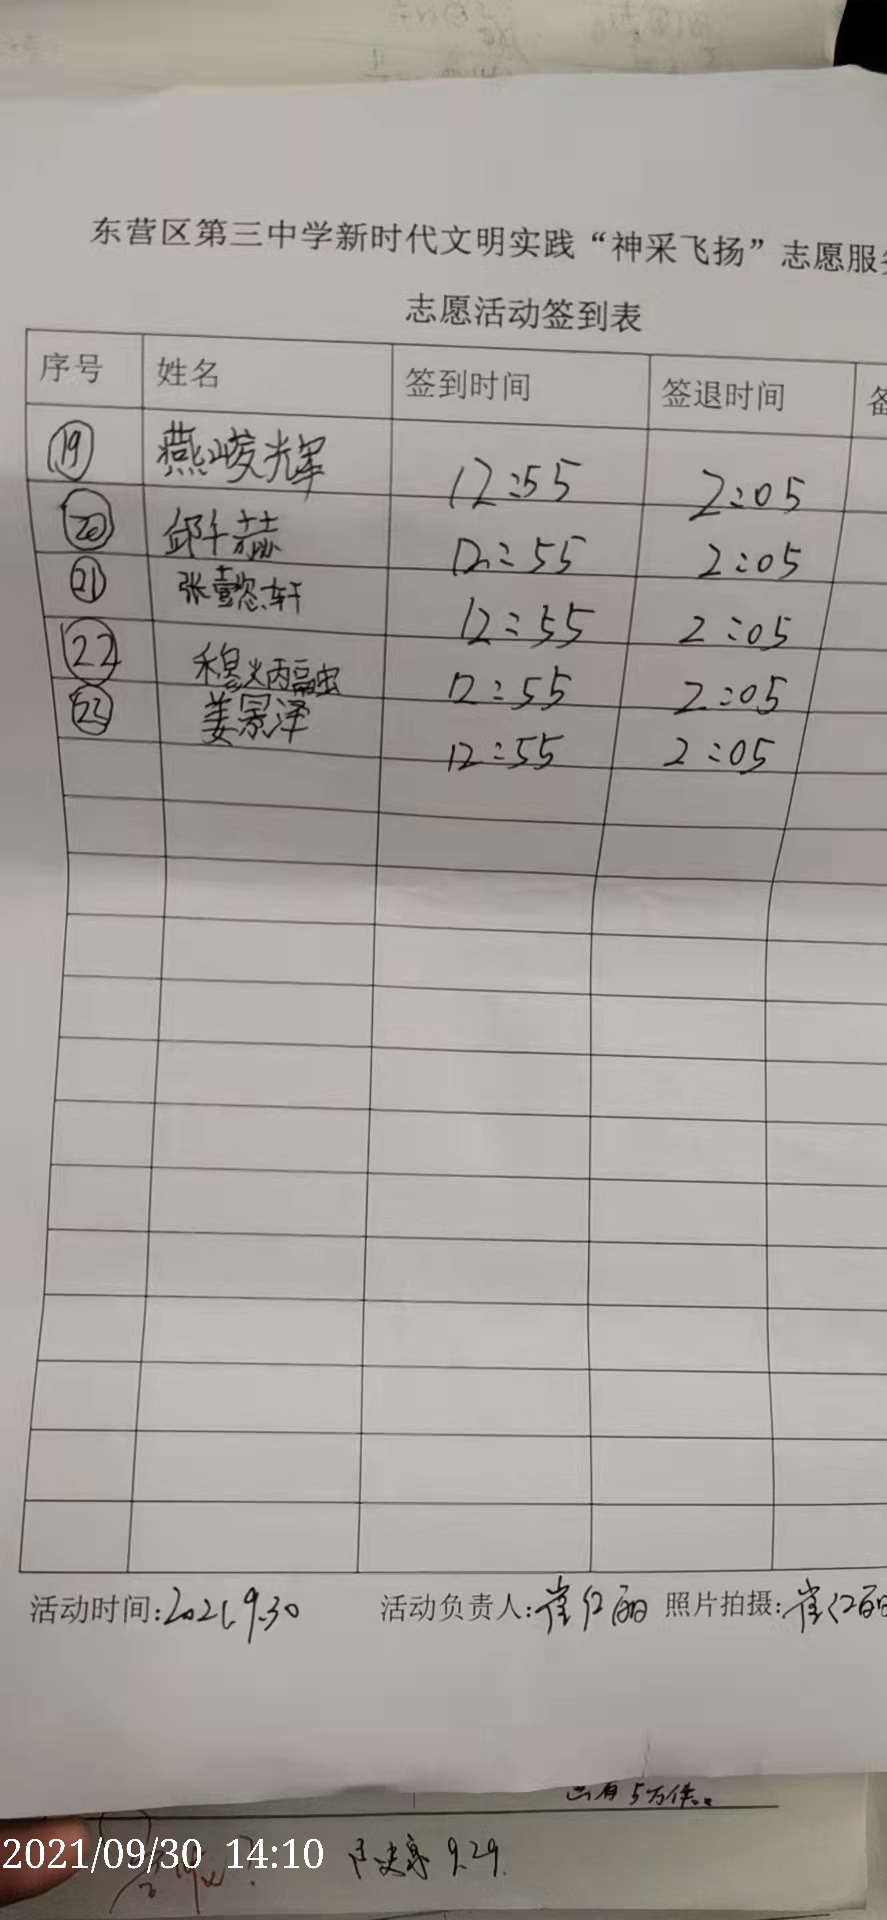 东营区第三中学新时代文明实践“神采飞扬”志愿服务
志愿活动签到表
序号 姓名 签到时间 签退时间 备
19 燕峻辉 12:55 2:05
20 邱千赫 12:55 2:05
21 张懿轩 12:55 2:05
22 穆炳融 12:55 2:05
23 姜景泽 12:55 2:05
活动时间:2021.9.30 活动负责人:崔红丽 照片拍摄:崔红丽
5万件。
2021/09/30 14:10 9.29.